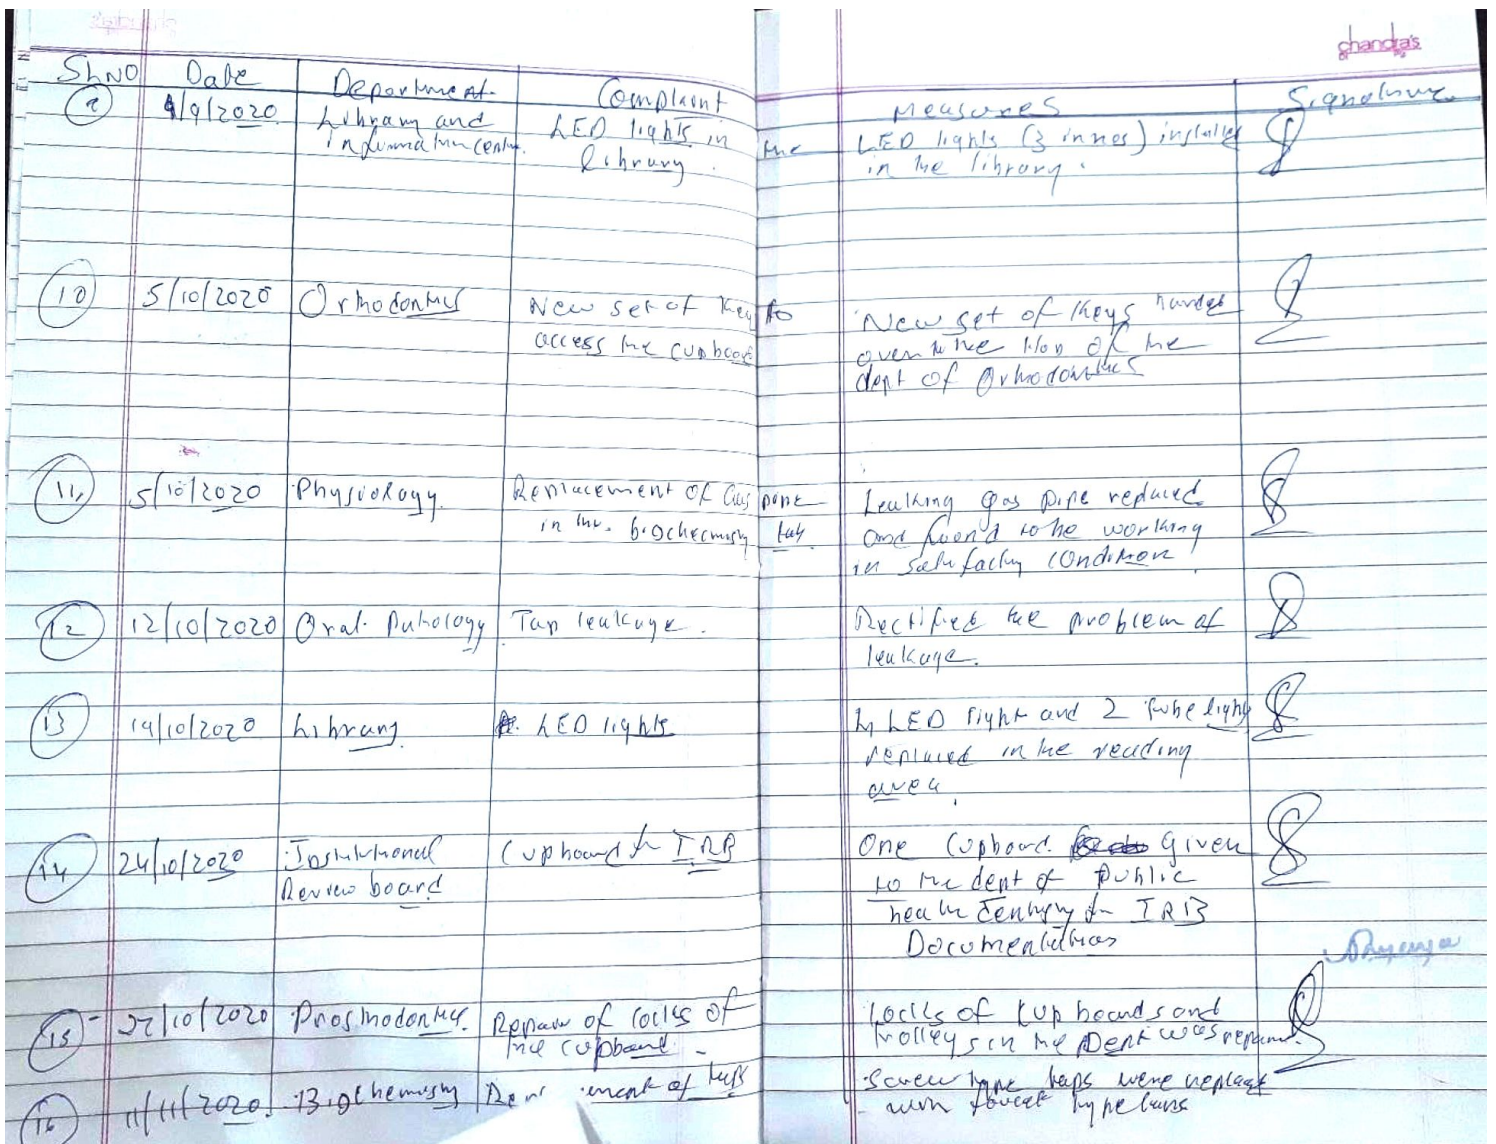 chandra's
Sl.NO Date Department Complaint Measures Signature
9 9/9/2020 Library and LED lights in the LED lights (3 innos) installed
information centre. library. in the library.
10 5/10/2020 Orthodontics New set of Key to New set of Keys handed
access the cupboard over to the HOD of the
dept of Orthodontics
11 5/10/2020 Physiology Replacement of Gas pipe Leaking gas pipe replaced
in the biochemistry lab. and found to be working
in satisfactory condition.
12 12/10/2020 Oral Pathology Tap leakage. Rectified the problem of
leakage.
13 19/10/2020 Library LED lights LED light and 2 tube light
replaced in the reading
area.
14 24/10/2020 Institutional Cupboard for IRB One Cupboard Given
Review board to the dept of Public
health Dentistry for IRB
Documentations
15 27/10/2020 Prosthodontics. Repair of locks of Locks of Cupboards and
the cupboard trolleys in the Dept was repaired.
16 11/11/2020. Biochemistry of taps Screw type taps were replaced
with faucet type taps